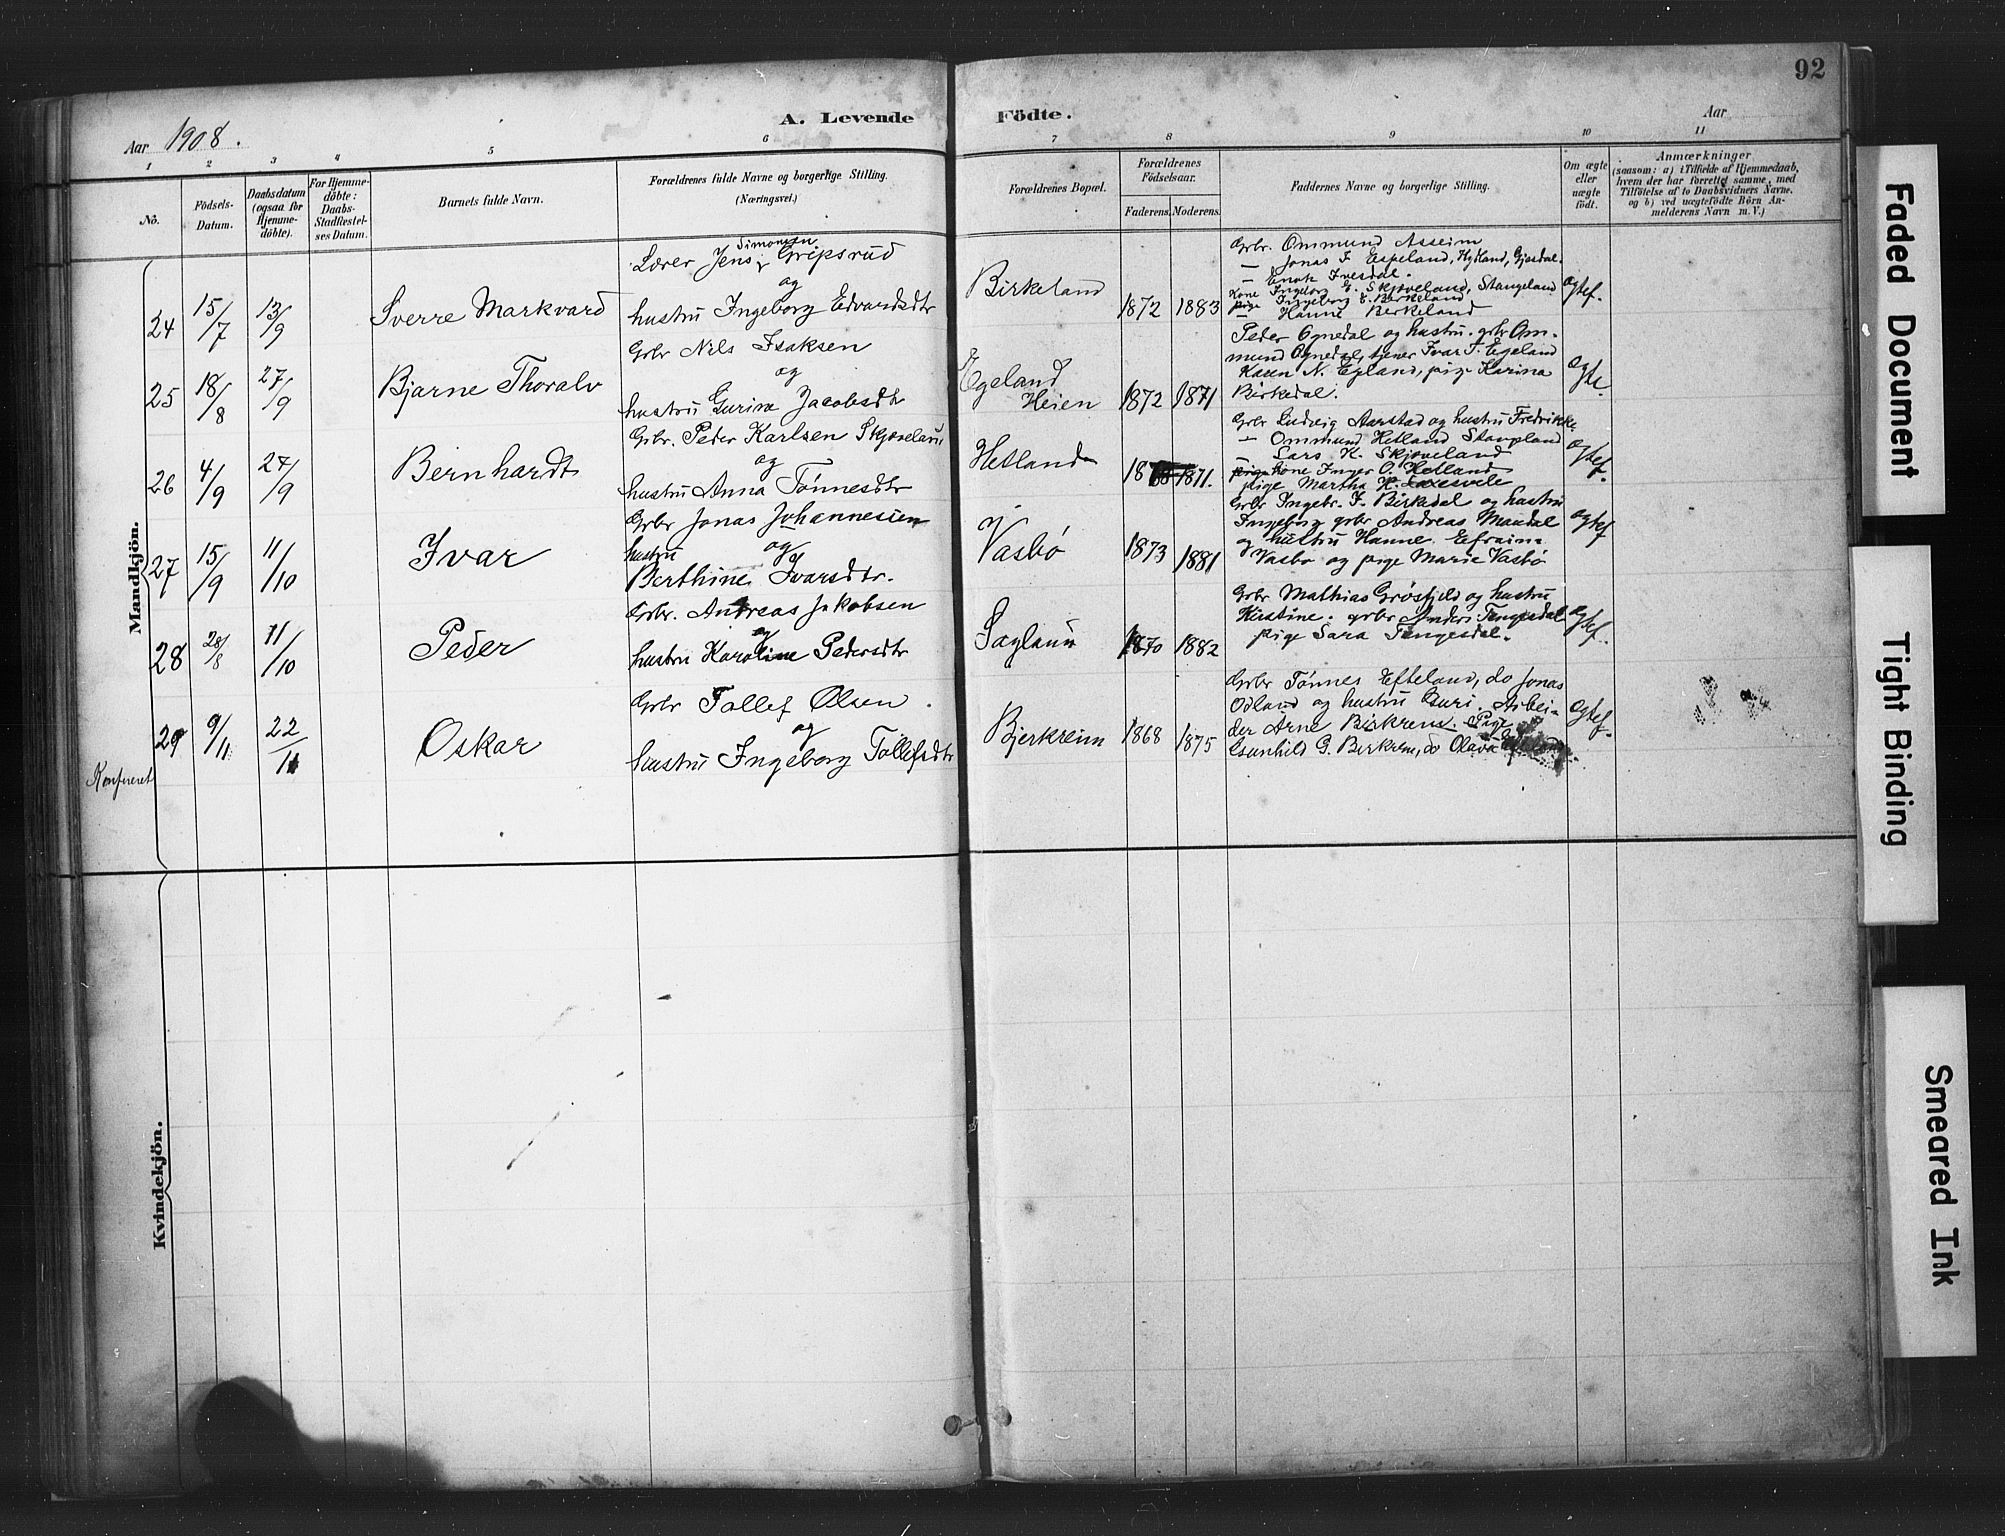 92
Aar 1908.
A. Levende Födte.
Aar
1 2 3 4 5 6 7 8 9 10 11
No.
Födsels-Datum.
Daabsdatum (ogsaa for Hjemme-döbte).
For Hjemme-döbte: Daabs-Stadfæstel-ses Datum.
Barnets fulde Navn.
Forældrenes fulde Navne og borgerlige Stilling.
(Næringsvei.)
Forældrenes Bopæl.
Forældrenes Födselsaar.
Faderens. Moderens.
Faddernes Navne og borgerlige Stilling.
Om ægte eller uægte födt.
Anmærkninger
(saasom: a) i Tilfælde af Hjemmedaab, hvem der har forrettet samme, med Tilföielse af to Daabsvidners Navne, og b) ved uægtefödte Börn An-melderens Navn m. V.)
Mandkjön.
24 15/7 13/9 Sverre Markvard
Lærer Jens Simonsen Gripsrud
og
hustru Ingeborg Edvardsdtr
Birkeland 1872 1883
Grbr. Ommund Asseim
— Jonas J. Espeland, Hytland, Gjesdal.
— Enok Ivesdal.
Kone Ingeborg E. Skjæveland, Stangeland
pige Ingeborg E. Birkeland
— Hanne Birkeland
Ægtef.
25 18/8 27/9 Bjarne Thoralv
Grbr Nils Isaksen
og
hustru Gurine Jacobsdtr
Egeland
Heien 1872 1871
Peder Ognedal og hustru. grbr Om-
mund Ognedal, tjener Ivar T. Egeland
Karen N. Egland, pige Karina
Birkedal.
Ægte.
26 4/9 27/9 Bernhardt
Grbr. Peder Karlsen Skjæveland
og
hustru Anna Tönnesdtr
Hetland 1871.
Grbr Ludvig Aarstad og hustru Fredrikke
— Ommund Hetland Stavpland
— Lars K. Skjæveland
pige kone Inger O. Hetland
pige Martha H. Laxesvele
Ægtef.
27 15/9 11/10 Ivar
Grbr Jonas Johannesen
og
hustru
Berthine Ivarsdtr.
Vasbø 1873 1881
Grbr Ingebr. J. Birkedal og hustru
Ingeborg grbr Andreas Maudal
og hustru Hanne. Efraim
Vasbø og pige Marie Vasbø
Ægtef
28 28/8 11/10 Peder
Grbr. Andreas Jakobsen
og
hustru Karoline Pedersdtr
Saglaun 1870 1882
Grbr Mathias Grøsfjeld og hustru
Kirstine. grbr Anders Tengesdal
pige Sara Tengesdal.
Ægtef.
29 9/11 22/11 Oskar
Grbr Tollef Olsen
og
hustru Ingeborg Tollefsdtr
Bjerkreim 1868 1875
Grbr Tönnes Efteland, do Jonas
Odland og hustru Guri. Arbei-
der Arne Birkrem. Pige
Gunhild G. Birkrem, do Olava
Ægtef.
Konfereret
Kvindekjön.
Faded Document
Tight Binding
Smeared Ink